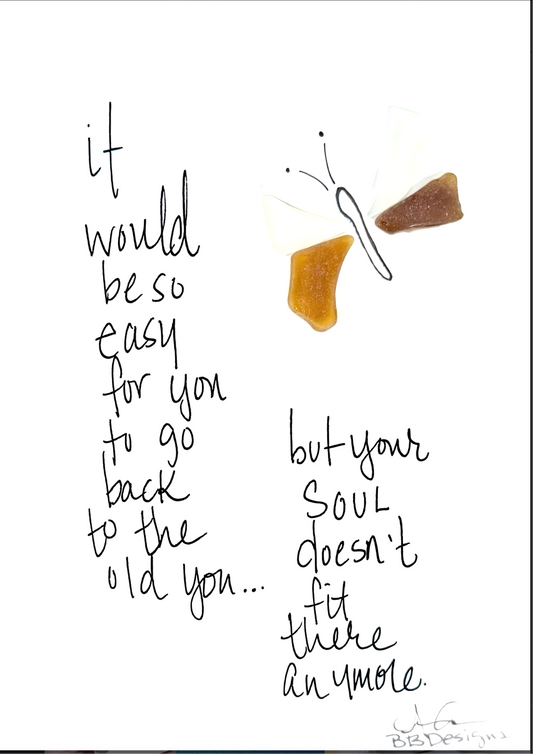 it
would
be so
easy
for you
to go
back
to the
old you...
but your
SOUL
doesn't
fit
there
anymore.
BBDesigns